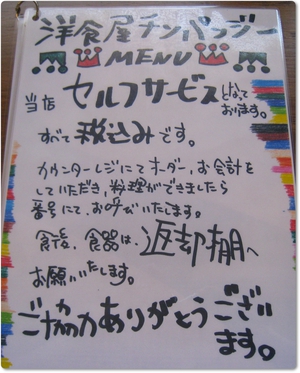 洋食屋チンパンジー
MENU
当店 セルフサービスとなっております。
すべて税込みです。
カウンターレジにてオーダー、お会計を
していただき、料理ができましたら
番号にて、お呼びいたします。
食後、食器は、返却棚へ
お願いいたします。
ご協力ありがとうござい
ます。